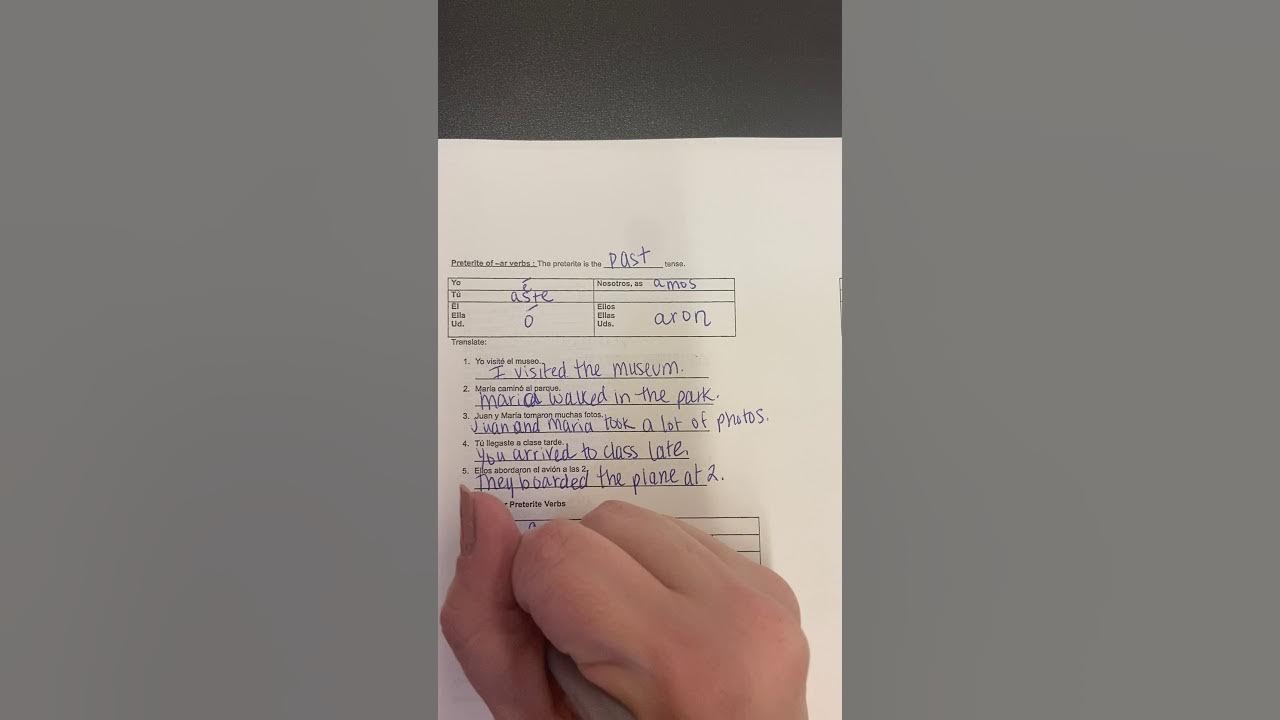 Preterite of –ar verbs : The preterite is the past tense.
Yo é Nosotros, as amos
Tú aste
Él Ellos
Ella ó Ellas aron
Ud. Uds.
Translate:
1. Yo visité el museo.
I visited the museum.
2. María caminó al parque.
Maria walked in the park.
3. Juan y María tomaron muchas fotos.
Juan and Maria took a lot of photos.
4. Tú llegaste a clase tarde.
You arrived to class late.
5. Ellos abordaron el avión a las 2.
They boarded the plane at 2.
Preterite Verbs